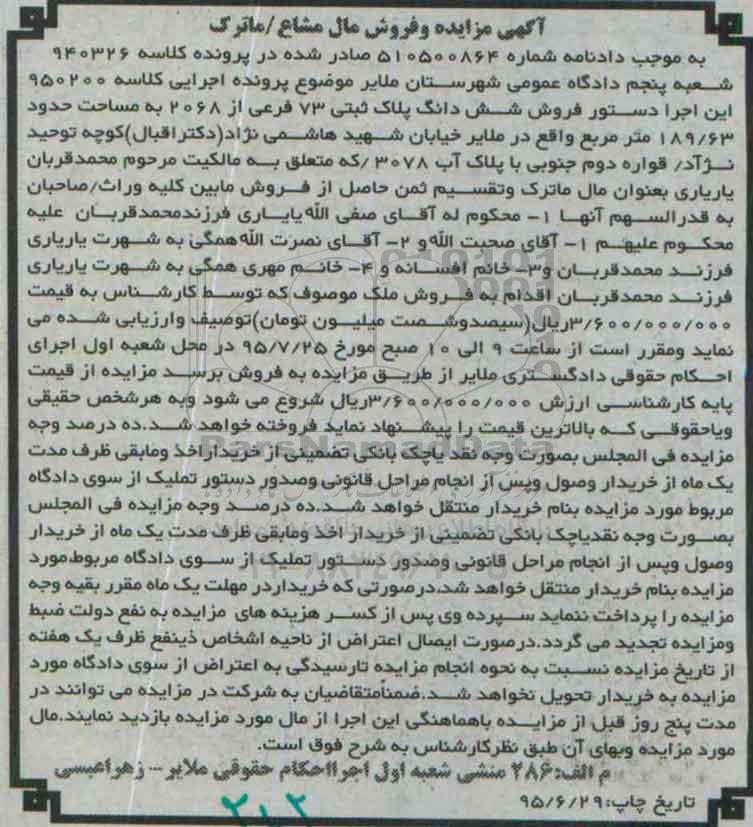 آگهی مزایده وفروش مال مشاع/ماترک
به موجب دادنامه شماره ۵۱۰۵۰۰۸۶۴ صادر شده در پرونده کلاسه ۹۴۰۳۲۶
شعبه پنجم دادگاه عمومی شهرستان ملایر موضوع پرونده اجرایی کلاسه ۹۵۰۲۰۰
این اجرا دستور فروش شش دانگ پلاک ثبتی ۷۳ فرعی از ۲۰۶۸ به مساحت حدود
۱۸۹/۶۳ متر مربع واقع در ملایر خیابان شهید هاشمی نژاد(دکتراقبال)کوچه توحید
نژآد/ قواره دوم جنوبی با پلاک آب ۳۰۷۸ /که متعلق به مالکیت مرحوم محمدقربان
یاریاری بعنوان مال ماترک وتقسیم ثمن حاصل از فروش مابین کلیه وراث/صاحبان
به قدرالسهم آنها ۱- محکوم له آقای صفی الله یایاری فرزندمحمدقربان علیه
محکوم علیهم ۱- آقای صحبت الله و ۲- آقای نصرت الله همگی به شهرت یاریاری
فرزند محمدقربان و۳-خانم افسانه و ۴- خانم مهری همگی به شهرت یاریاری
فرزند محمدقربان اقدام به فروش ملک موصوف که توسط کارشناس به قیمت
۳/۶۰۰/۰۰۰/۰۰۰ریال(سیصدوشصت میلیون تومان)توصیف وارزیابی شده می
نماید ومقرر است از ساعت ۹ الی ۱۰ صبح مورخ ۹۵/۷/۲۵ در محل شعبه اول اجرای
احکام حقوقی دادگستری ملایر از طریق مزایده به فروش برسد مزایده از قیمت
پایه کارشناسی ارزش ۳/۶۰۰/۰۰۰/۰۰۰ریال شروع می شود وبه هرشخص حقیقی
ویاحقوقی که بالاترین قیمت را پیشنهاد نماید فروخته خواهد شد.ده درصد وجه
مزایده فی المجلس بصورت وجه نقد یاچک بانکی تضمینی از خریداراخذ ومابقی ظرف مدت
یک ماه از خریدار وصول وپس از انجام مراحل قانونی وصدور دستور تملیک از سوی دادگاه
مربوط مورد مزایده بنام خریدار منتقل خواهد شد.ده درصد وجه مزایده فی المجلس
بصورت وجه نقدیاچک بانکی تضمینی از خریدار اخذ ومابقی ظرف مدت یک ماه از خریدار
وصول وپس از انجام مراحل قانونی وصدور دستور تملیک از سوی دادگاه مربوط،مورد
مزایده بنام خریدار منتقل خواهد شد.درصورتی که خریداردر مهلت یک ماه مقرر بقیه وجه
مزایده را پرداخت ننماید سپرده وی پس از کسر هزینه های مزایده به نفع دولت ضبط
ومزایده تجدید می گردد.درصورت ایصال اعتراض از ناحیه اشخاص ذینفع ظرف یک هفته
از تاریخ مزایده نسبت به نحوه انجام مزایده تارسیدگی به اعتراض از سوی دادگاه مورد
مزایده به خریدار تحویل نخواهد شد.ضمناًمتقاضیان به شرکت در مزایده می توانند در
مدت پنج روز قبل از مزایده باهماهنگی این اجرا از مال مورد مزایده بازدید نمایند.مال
مورد مزایده وبهای آن طبق نظرکارشناس به شرح فوق است.
م الف:۲۸۶ منشی شعبه اول اجرااحکام حقوقی ملایر-- زهراعبسی
تاریخ چاپ:۹۵/۶/۲۹
ParsNamadData